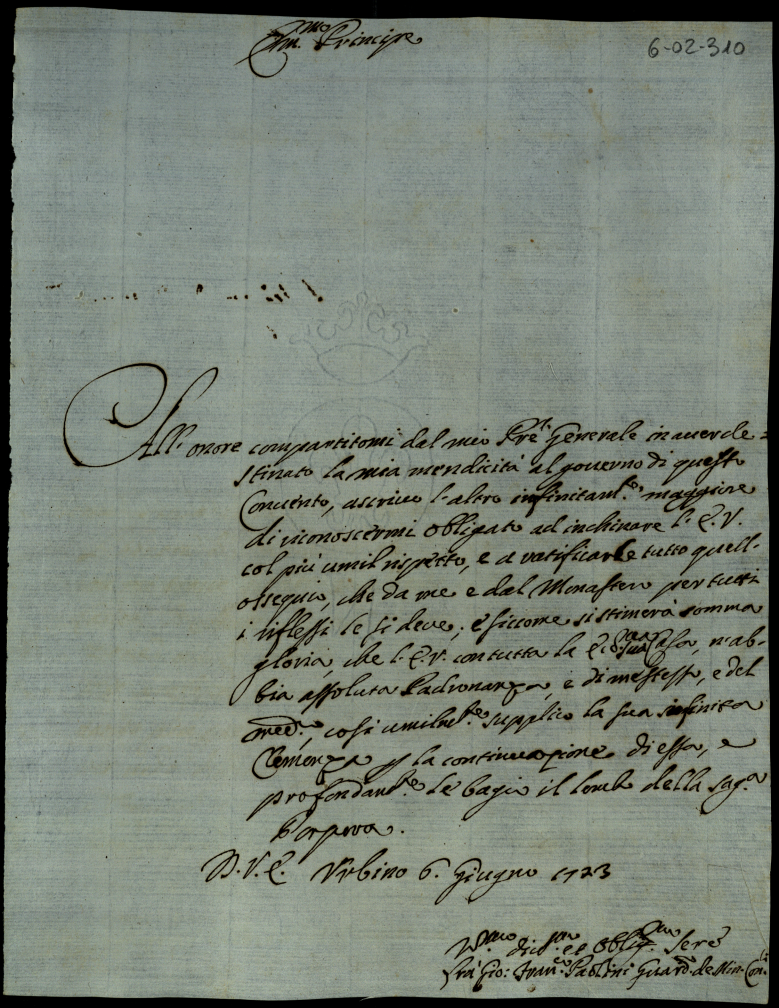 Em.mo Principe
6-02-310
All'onore compartitomi dal mio Pre. Generale in aver de=
stinato la mia mendicità al governo di questo
Convento, ascrivo l'altro infinitam.te maggiore
di riconoscermi obligato ad inchinare l'E.V.
col più umil rispetto, e a ratificarle tutto quell'
ossequio, che da me e dal Monastero per tutti
i riflessi le si deve; e siccome si stimerà somma
gloria, che l'E.V. con tutta la Casa, n'ab-
bia assoluta Padronanza, e di me stesso, e del
med.mo, così umilm.te supplico la sua infinita
Clemenza p la continuazione di essa, e
profondam.te le bagio il lembo della sag.a
Porpora.
D.V.E. Urbino 6. Giugno 1723
U.mo div.mo et oblig.mo Serv.e
Fra Gio: Fran.co Paolini Guard. de Min. Con.li